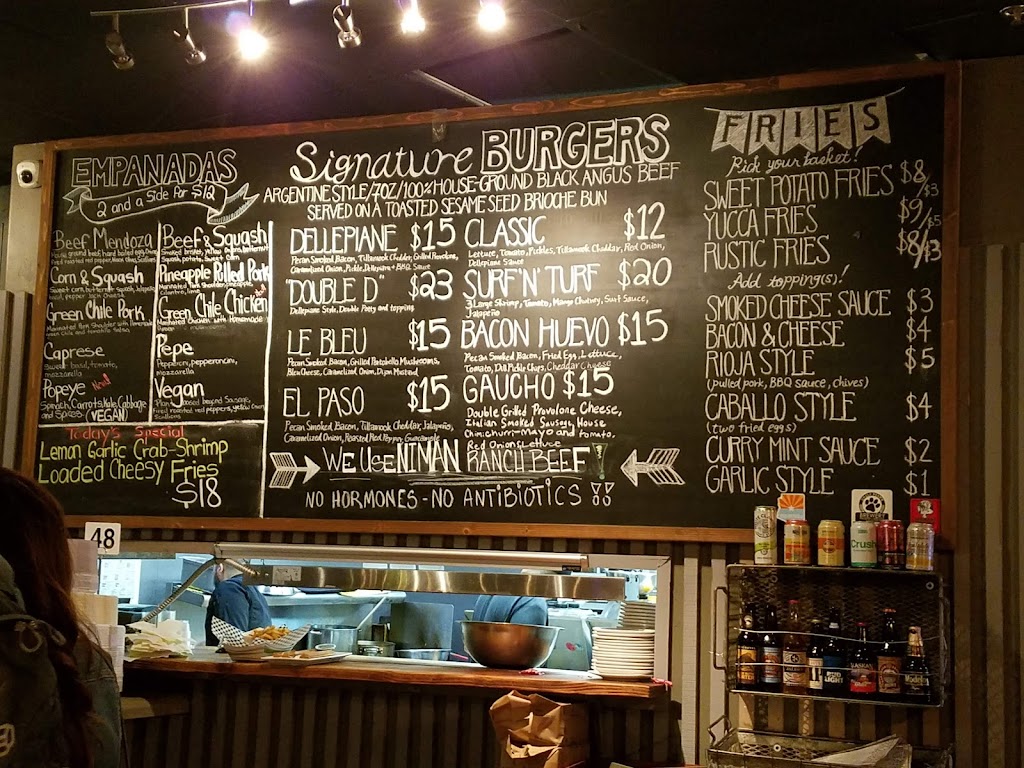 EMPANADAS
2 and a Side for $12
Beef Mendoza
Corn & Squash
Green Chile Pork
Caprese
Sweet basil, tomato,
mozzarella
Popeye New!
Spinach, Carrots, Kale, Cabbage
(VEGAN)
Beef & Squash
Pineapple Pulled Pork
Green Chile Chicken
Pepe
Pepperoni, pepperoncini,
mozzarella
Vegan
Today's Special
Lemon Garlic Crab-Shrimp
Loaded Cheesy Fries
$18
Signature BURGERS
ARGENTINE STYLE/7OZ/100% HOUSE-GROUND BLACK ANGUS BEEF
SERVED ON A TOASTED SESAME SEED BRIOCHE BUN
DELLEPIANE $15
Pecan Smoked Bacon, Tillamook Cheddar, Grilled Pancetta,
Caramelized Onion, Pickle, Dellepiane + BBQ Sauce
"DOUBLE D" $23
Dellepiane Style, Double Patty and topping
LE BLEU $15
Pecan Smoked Bacon, Grilled Portobello Mushrooms,
Bleu Cheese, Caramelized Onion, Dijon Mustard
EL PASO $15
Pecan Smoked Bacon, Tillamook Cheddar, Jalapeño,
Caramelized Onion, Roasted Red Pepper, Guacamole
CLASSIC $12
Lettuce, Tomato, Pickles, Tillamook Cheddar, Red Onion,
Dellepiane Sauce
SURF 'N' TURF $20
3 Large Shrimp, Tomato, Mango Chutney, Surf Sauce,
Jalapeño
BACON HUEVO $15
Pecan Smoked Bacon, Fried Egg, Lettuce,
Tomato, Dill Pickle Chips, Cheddar Cheese
GAUCHO $15
Double Grilled Provolone Cheese,
Italian Smoked Sausage, House
Chimichurri-Mayo and tomato,
Red Onion & Lettuce
WE USE NIMAN RANCH BEEF!
NO HORMONES - NO ANTIBIOTICS !!
FRIES
Pick your basket!
SWEET POTATO FRIES $8/$3
YUCCA FRIES $9/$5
RUSTIC FRIES $8/$3
Add topping(s)!
SMOKED CHEESE SAUCE $3
BACON & CHEESE $4
RIOJA STYLE $5
(pulled pork, BBQ sauce, chives)
CABALLO STYLE $4
(two fried eggs)
CURRY MINT SAUCE $2
GARLIC STYLE $1
48
Crush
Modelo